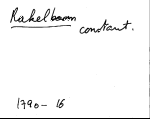 Rakelboom
constant.
1790-16